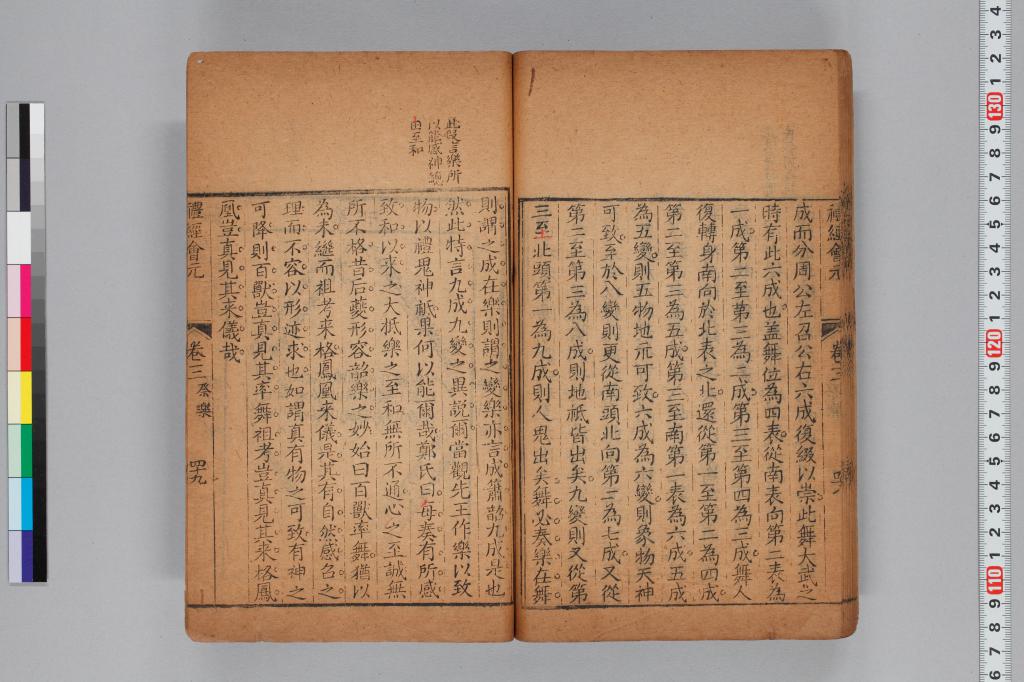 成而分周公左召公右六成復綴以崇此舞大武之
時有此六成也蓋舞位為四表從南表向第二表為
一成第二至第三為二成第三至第四為三成舞人
復轉身南向於北表之北還從第一至第二為四成
第二至第三為五成第三至南第一表為六成五成
為五變則五物地示可致六成為六變則象物天神
可致至於八變則更從南頭北向第二為七成又從
第二至第三為八成則地祇皆出矣九變則又從第
三至北頭第一為九成則人鬼出矣舞必奏樂在舞
此叚言樂所
以能感神總
由至和
則謂之成在樂則謂之變樂亦言成簫韶九成是也
然此特言九成九變之異說爾當觀先王作樂以致
物以禮鬼神祇果何以能爾哉鄭氏曰每奏有所感
致和以來之大抵樂之至和無所不通心之至誠無
所不格昔后夔形容韶樂之妙始曰百獸率舞猶以
為未繼而祖考來格鳳凰來儀是其有自然感召之
理而不容以形迹求也如謂真有物之可致有神之
可降則百獸豈真見其率舞祖考豈真見其來格鳳
凰豈真見其來儀哉
禮經會元
卷三
祭樂
四九